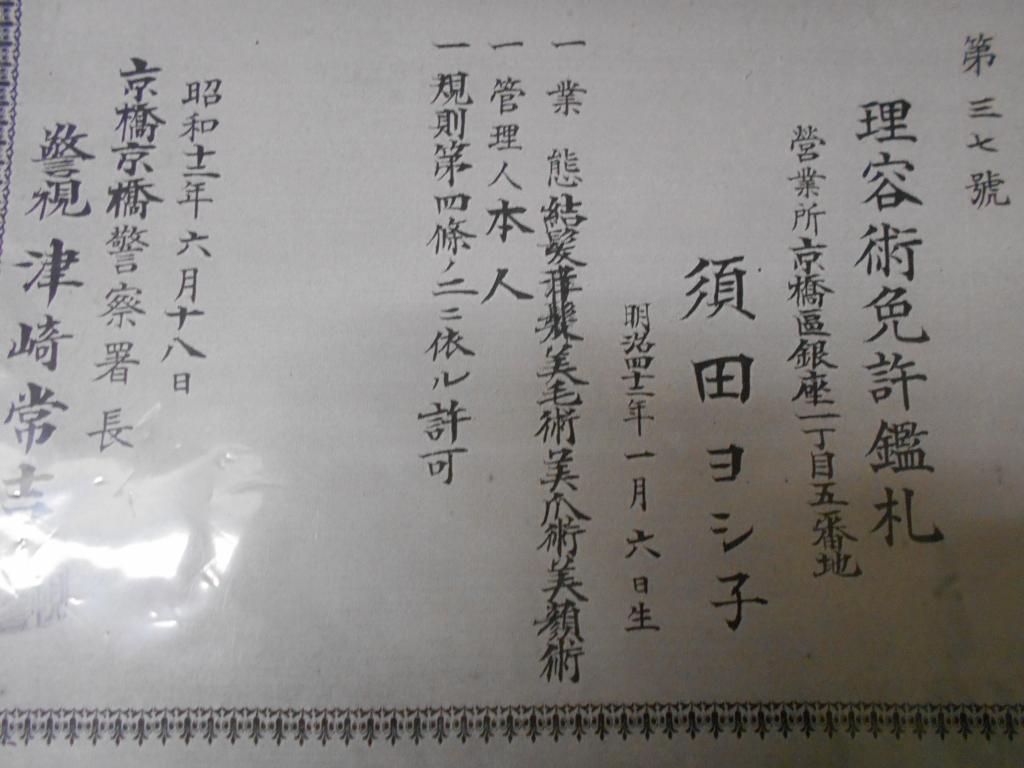 第三七號
理容術免許鑑札
營業所京橋區銀座一丁目五番地
須田ヨシ子
明治四十一年一月六日生
一業態結髮美毛術美爪術美顏術
一管理人本人
一規則第四條ノ二ニ依ル許可
昭和十二年六月十八日
京橋京橋警察署長
警視津崎常